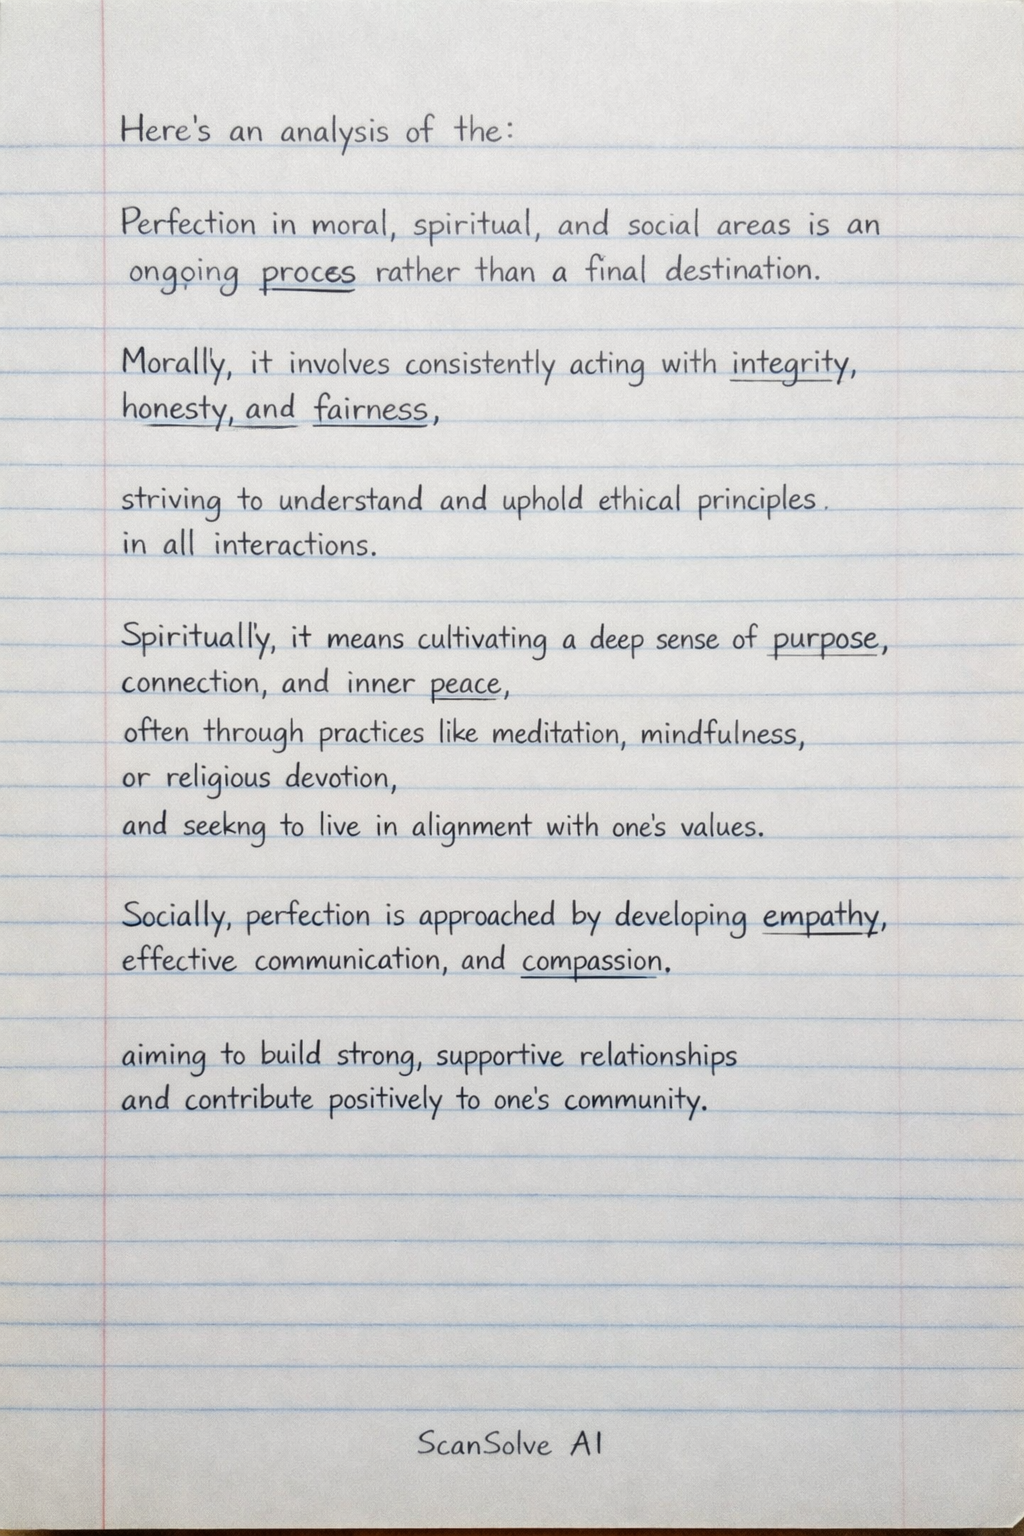 Here's an analysis of the:
Perfection in moral, spiritual, and social areas is an
ongoing proces rather than a final destination.
Morally, it involves consistently acting with integrity,
honesty, and fairness,
striving to understand and uphold ethical principles.
in all interactions.
Spiritually, it means cultivating a deep sense of purpose,
connection, and inner peace,
often through practices like meditation, mindfulness,
or religious devotion,
and seekng to live in alignment with one's values.
Socially, perfection is approached by developing empathy,
effective communication, and compassion.
aiming to build strong, supportive relationships
and contribute positively to one's community.
ScanSolve AI